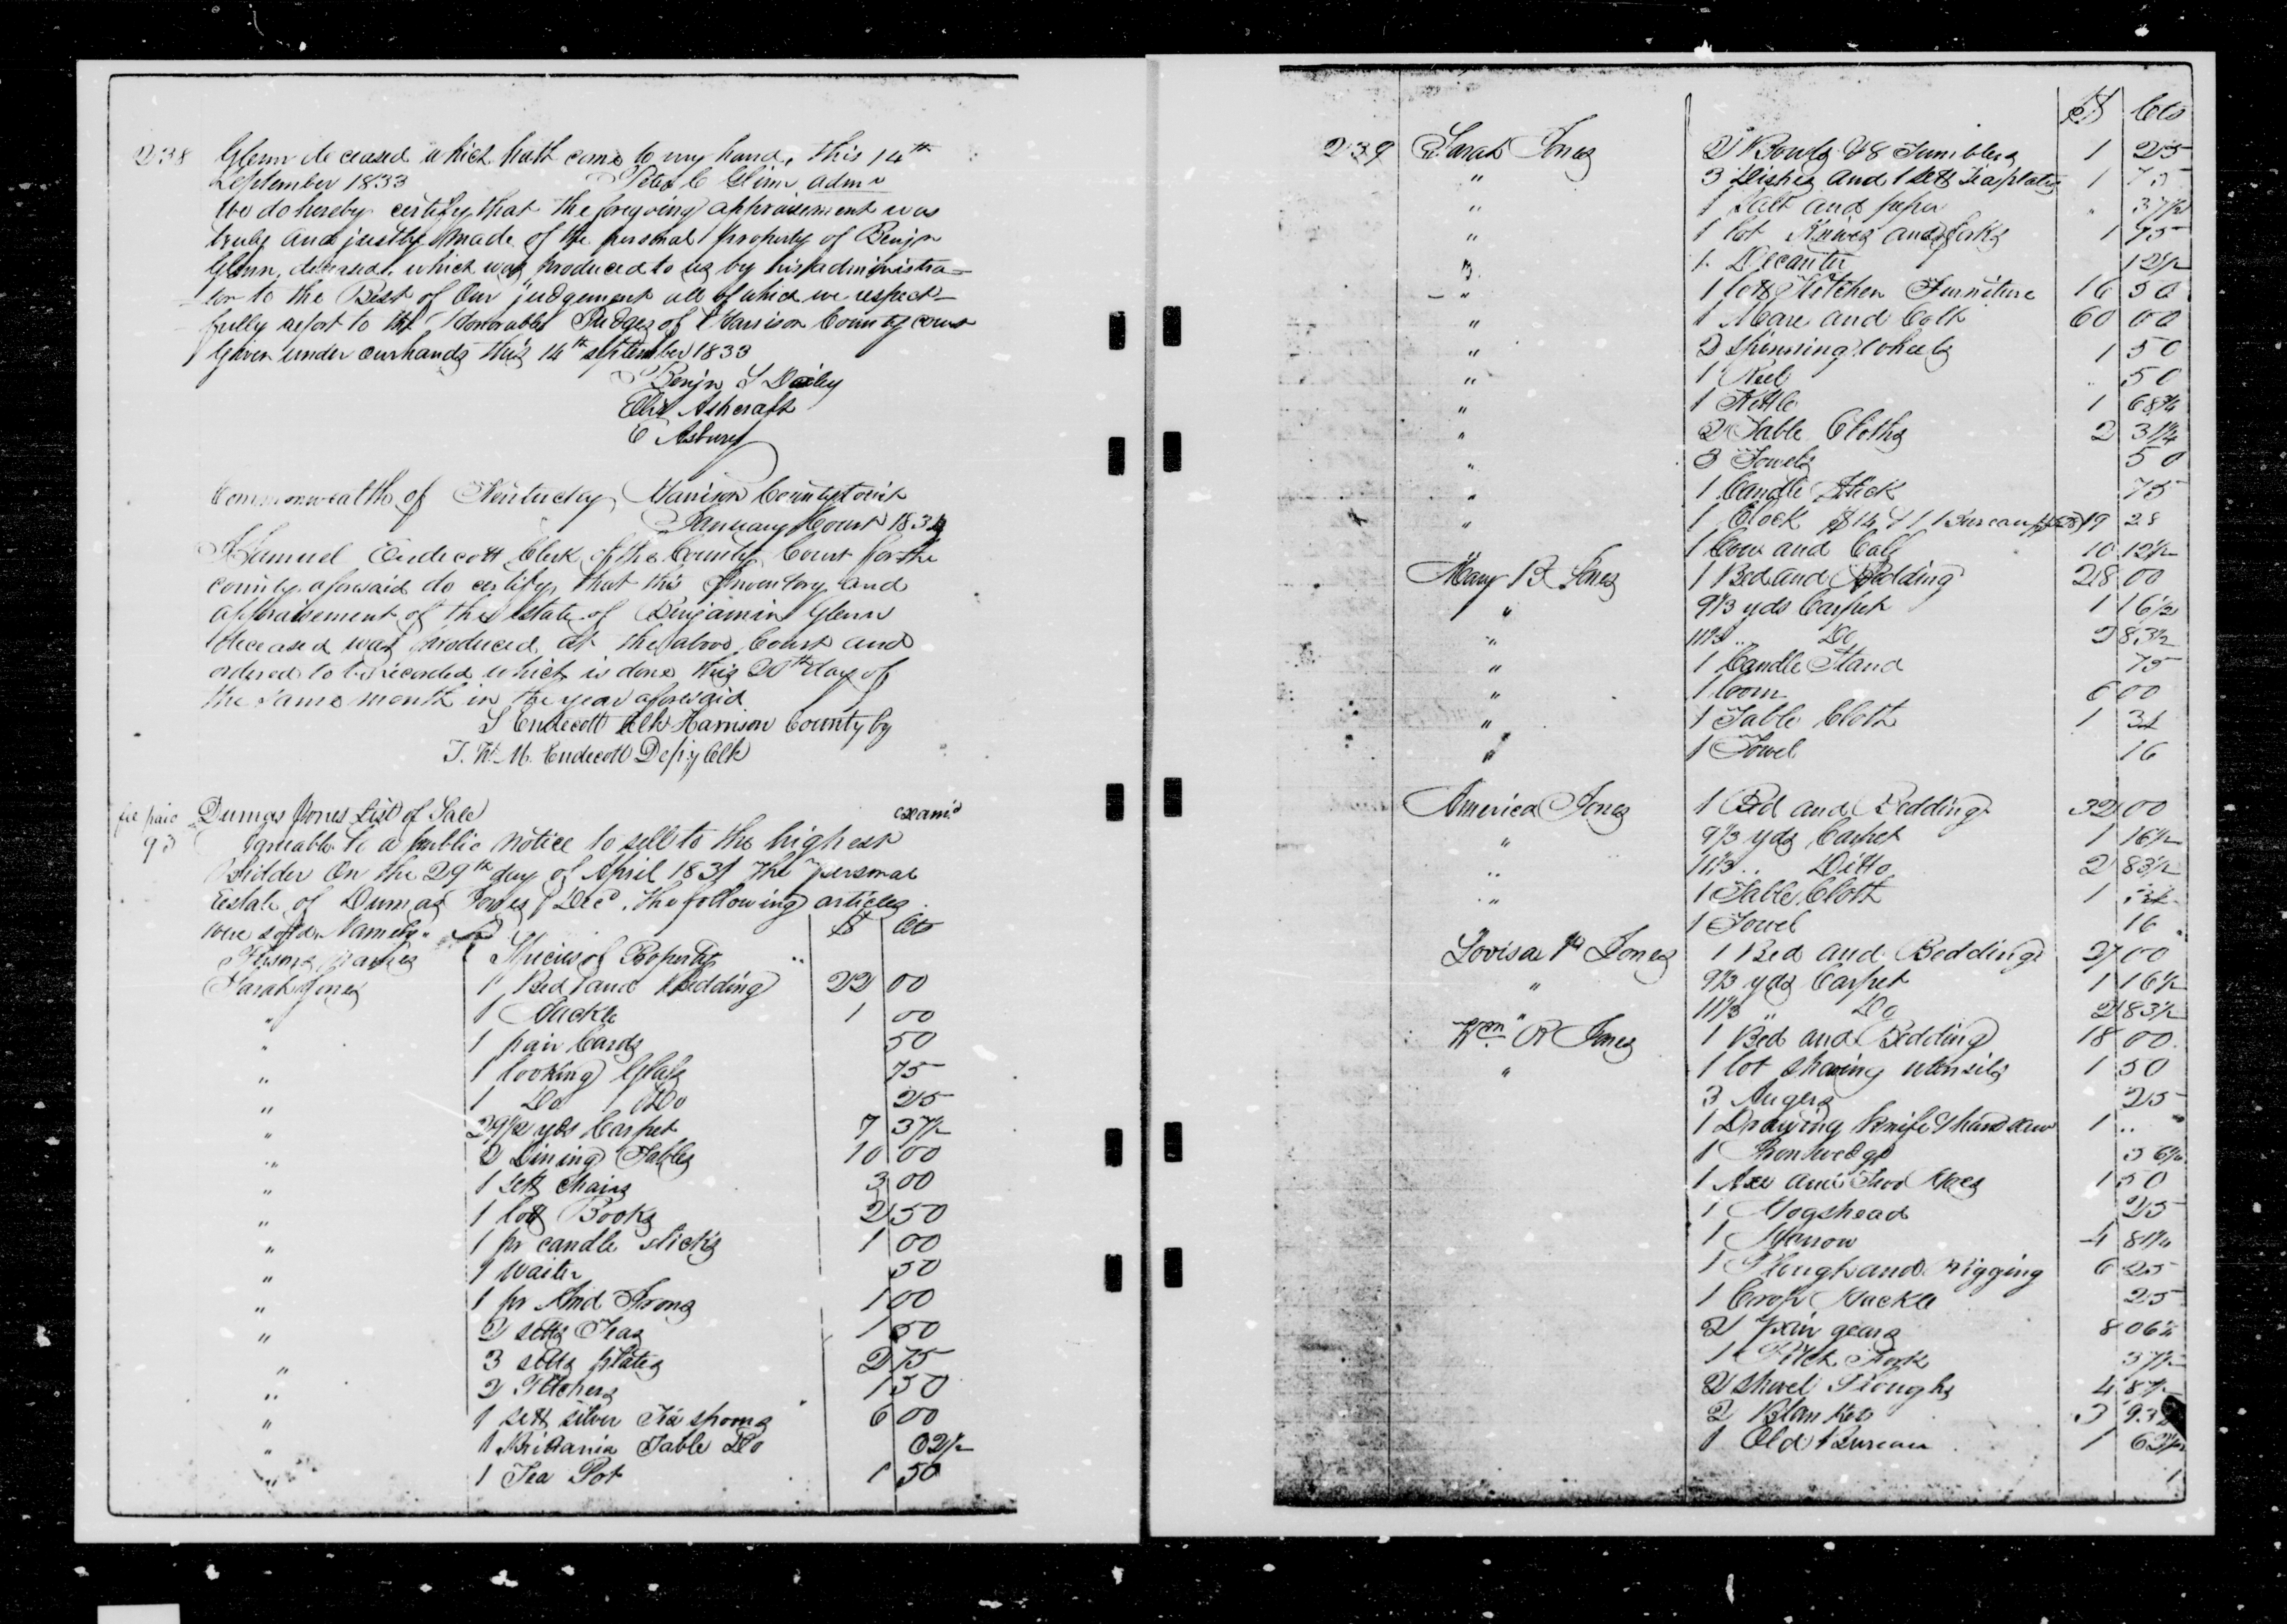 238 Glenn deceased which hath come to my hand, this 14th
September 1833 Peter C Glenn admr
We do hereby certify that the foregoing appraisement was
truly and justly made of the personal property of Benjn
Glenn, deceased, which was produced to us by his administra-
tor to the Best of Our judgement all of which we respect-
fully report to the Honorable Judges of Harrison County court
Given under our hands this 14th september 1833
Benjn S Dailey
Ashcraft
E Asbury
Commonwealth of Kentucky, Harrison County to wit
January Court 183
I Samuel Endecott Clerk of the County Court for the
county aforesaid do certify that this Inventory and
appraisement of the Estate of Benjamin Glenn
deceased was produced at the above Court and
ordered to be recorded which is done this 20th day of
the same month in the year aforesaid
S Endecott Clk Harrison County by
T. W. M. Endecott Depy Clk
fee paid Dumas Jones List of Sale exam'd
93 Agreable to a public notice to sell to the highest
Bidder On the 29th day of April 1831 The personal
Estate of Dumas Jones Decd, the following articles
were sold. Namely. $ Cts
Persons names Species of Property
Sarah Jones 1 Bed and Bedding 22 00
" 1 Hackle 1 00
" 1 pair Cards 50
" 1 looking Glass 75
" 1 Do Do 25
" 29 1/2 yds Carpet 7 37 1/2
" 2 Dining Tables 10 00
" 1 sett chairs 3 00
" 1 lott Books 2 50
" 1 pr candle sticks 1 00
" 1 waiter 50
" 1 pr And Irons 1 00
" 2 setts Teas 1 50
" 3 setts plates 2 75
" 2 Pitchers 1 50
" 1 sett silver Tea spoons 6 00
" 1 Britania Table Do 02 1/2
" 1 Tea Pot 1 50
$ Cts
239 Sarah Jones 2 Bowls & 8 Tumblers 1 25
" 3 Dishes and 1 sett Teaplates 1 75
" 1 Salt and peper " 37 1/2
" 1 lot Knives and forks 1 75
" 1 Decanter 12 1/2
" 1 lott Kitchen Furniture 16 50
" 1 Mare and Colt 60 00
" 2 Spinning Wheels 1 50
" 1 Reel " 50
" 1 Kettle 1 68 3/4
" 2 Table Cloths 2 31 1/4
" 3 Towels 50
" 1 Candle Stick 75
" 1 Clock $14 & 1 Bureau 19 28
" 1 Cow and Calf 10 12 1/2
Mary B Jones 1 Bed and Bedding 28 00
" 9 1/3 yds Carpet 1 16 1/2
" 11 1/3 " Do 2 83 1/2
" 1 Candle Stand 75
" 1 loom 6 00
" 1 Table Cloth 1 31
" 1 Towel 16
America Jones 1 Bed and Bedding 32 00
" 9 1/3 yds Carpet 1 16 1/2
" 11 1/3 " Ditto 2 83 1/2
" 1 Table Cloth 1
1 Towel 16
Lovisa Jones 1 Bed and Bedding 27 00
" 9 1/3 yds Carpet 1 16 1/2
" 11 1/3 " Do 2 83 1/2
Wm R Jones 1 Bed and Bedding 18 00
" 1 lot shaving utensils 1 50
3 Augers 25
1 Drawing knife & hand saw 1 "
1 Iron wedge 56 1/4
1 Axe and Two Hoes 1 50
1 Hogshead 25
1 Harrow 4 81 1/4
1 Plough and rigging 6 25
1 Hackle 25
2 pair gears 8 06 1/4
1 Pitch Fork 37 1/2
2 Shovel Ploughs 4 87 1/2
2 Blankets 3 93
1 Old Bureau 1 62 1/2